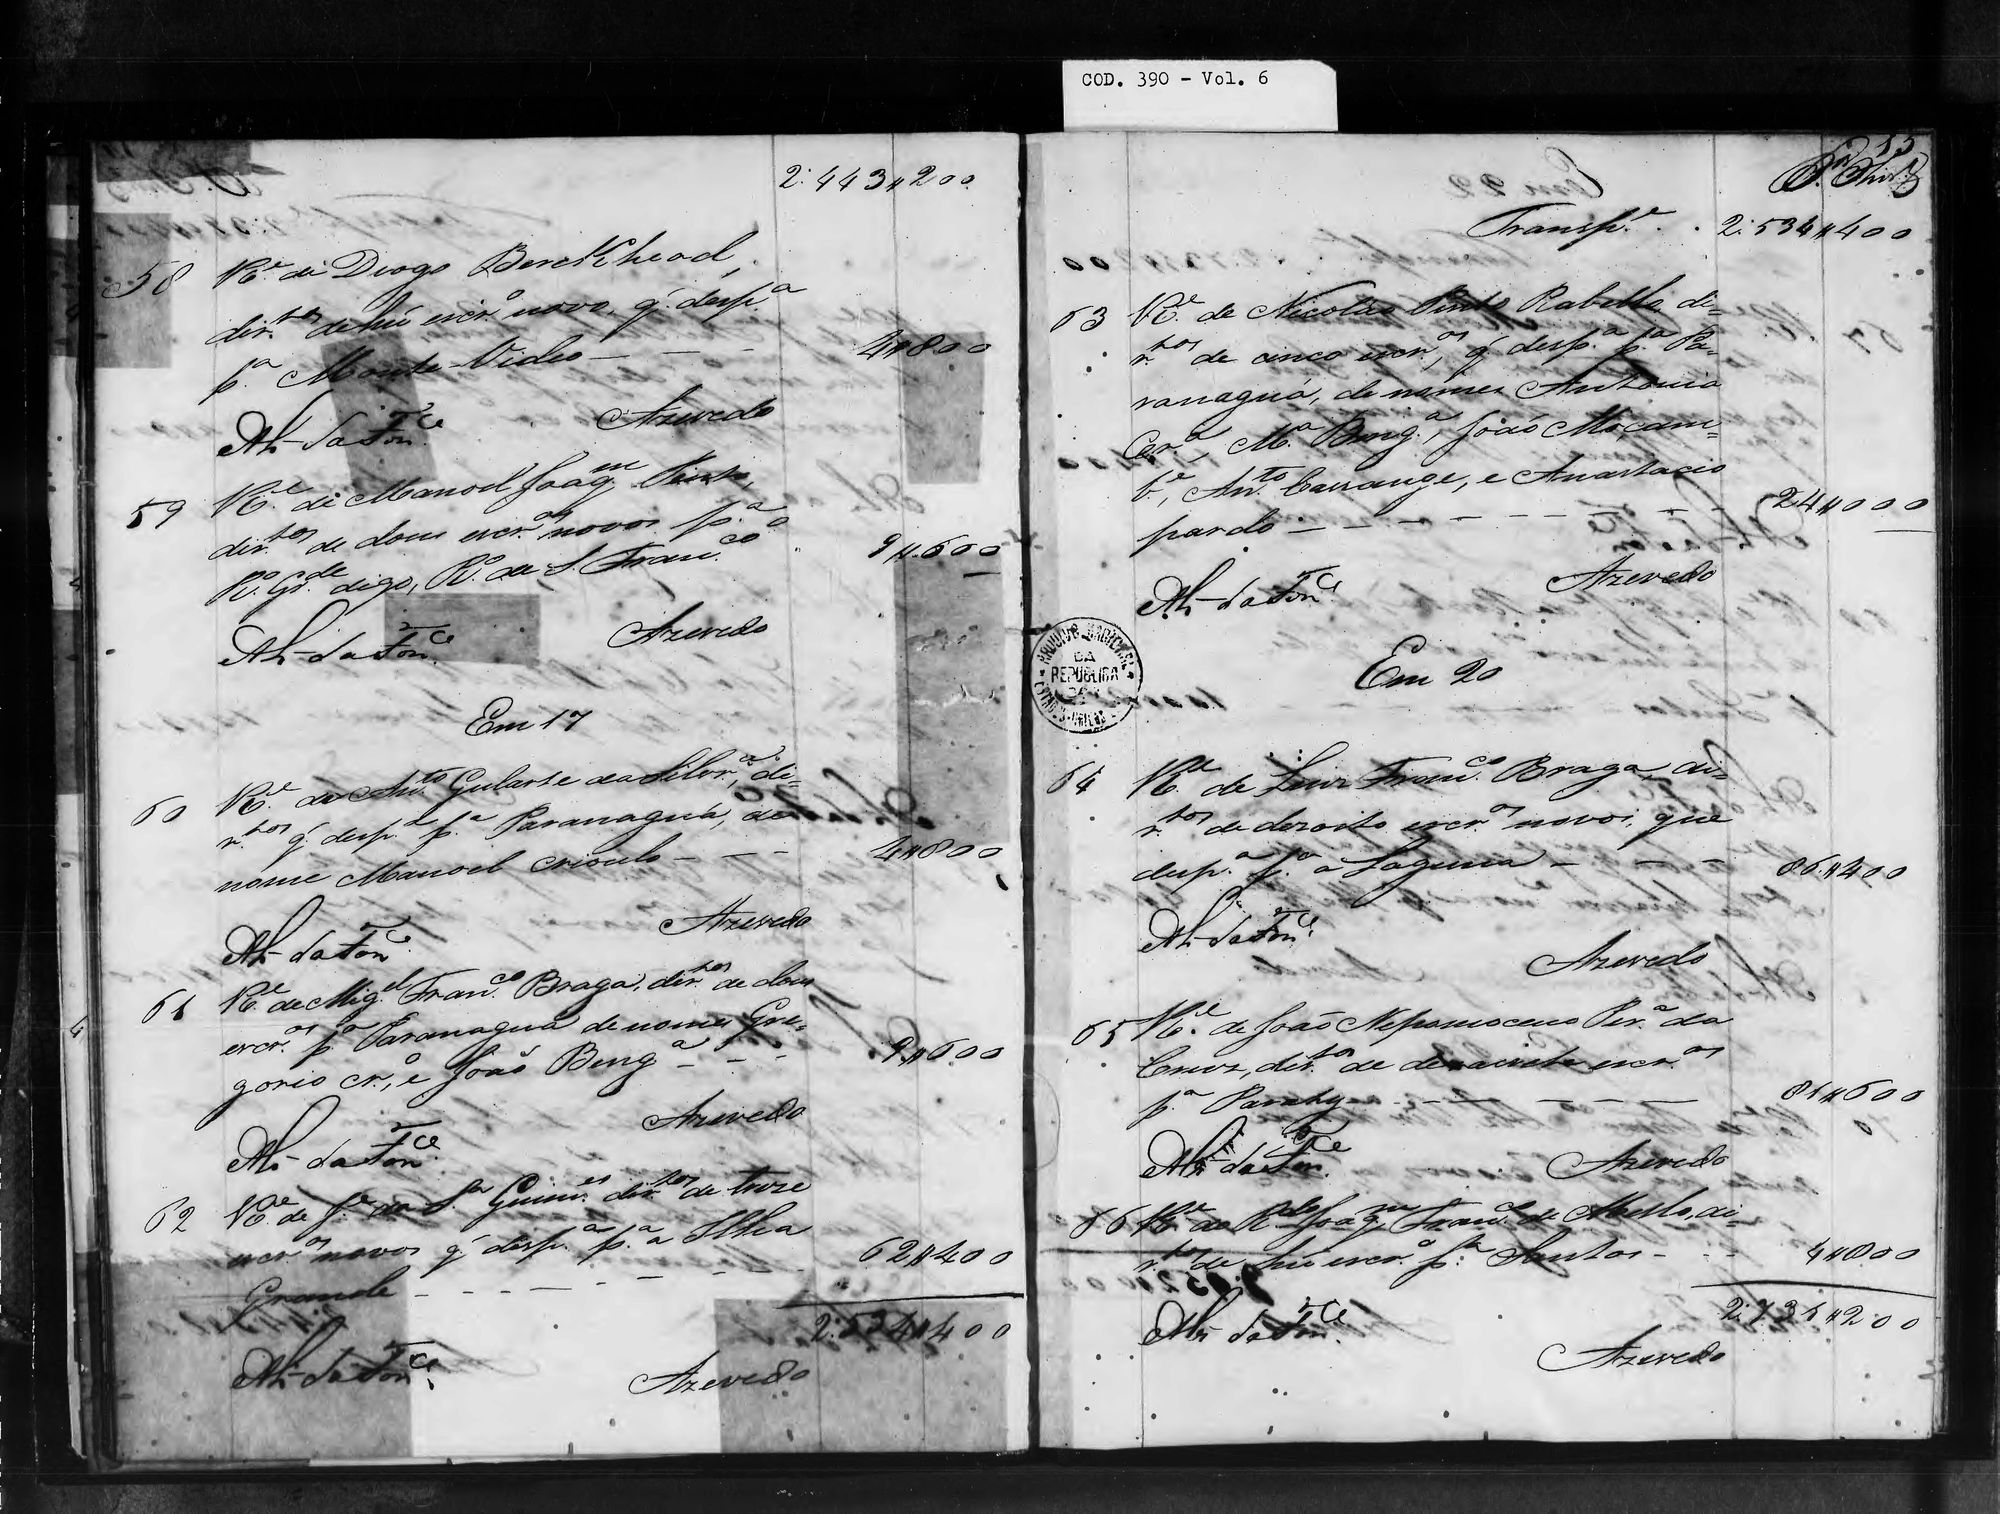 COD. 390 - Vol. 6
2:443$200
58 R.e de Diogo BercKhead,
dir.tos de hũ escr.o novo, q' desp.a
p.a Monte-Video - - - 4$800
Al. da Fon.ce Azevedo
59 R.e de Manoel Joaq.m Pinto,
dir.tos de dous escr.os novos p.a o
R.o Gr.de digo, R.o de S. Fran.co 9$600
Al. da Fon.ce Azevedo
Em 17
60 R.e de An.to Gularte da Silvr.a, di-
r.tos q' desp.a p.a Paranaguá, de
nome Manoel crioulo - - - 4$800
Al. da Fon.ce Azevedo
61 R.e de Mig.el Fran.co Braga, dir.tos de dous
escr.os p.a Paranaguá de nomes Gre-
gorio cr., e João Beng.a - - 9$600
Al. da Fon.ce Azevedo
62 R.e de J.e da S.a Guim.es dir.tos de treze
escr.os novos q' desp.a p.a a Ilha
Grande - - - - - - 62$400
2:534$400
Al. da Fon.ce Azevedo
55
Transp.e . . 2:534$400
63 R.e de Nicoláo Pinto Rabello, di-
r.tos de cinco escr.os, q' desp.a p.a Pa-
ranaguá, de nomes Antonia
Cr.a, M.a Beng.a, João Moçam-
b.e, An.to Cassange, e Anastacio
pardo - - - - - - - - 24$000
Al. da Fon.ce Azevedo
ARQUIVO NACIONAL
DA
REPUBLICA
Em 20
64 R.e de Luiz Fran.co Braga, di-
r.tos de dezoito escr.os novos, que
desp.a p.a a Laguna - - - - 86$400
Al. da Fon.ce
Azevedo
65 R.e de João Nepomoceno Per.a da
Cruz, dir.tos de dezasete escr.os
p.a Paraty - - - - - - 81$600
Al. da Fon.ce Azevedo
66 R.e do R.do Joaq.m Fran.co de Mello, di-
r.tos de hũ escr.o p.a Santos - - - 4$800
2:731$200
Al. da Fon.ce
Azevedo